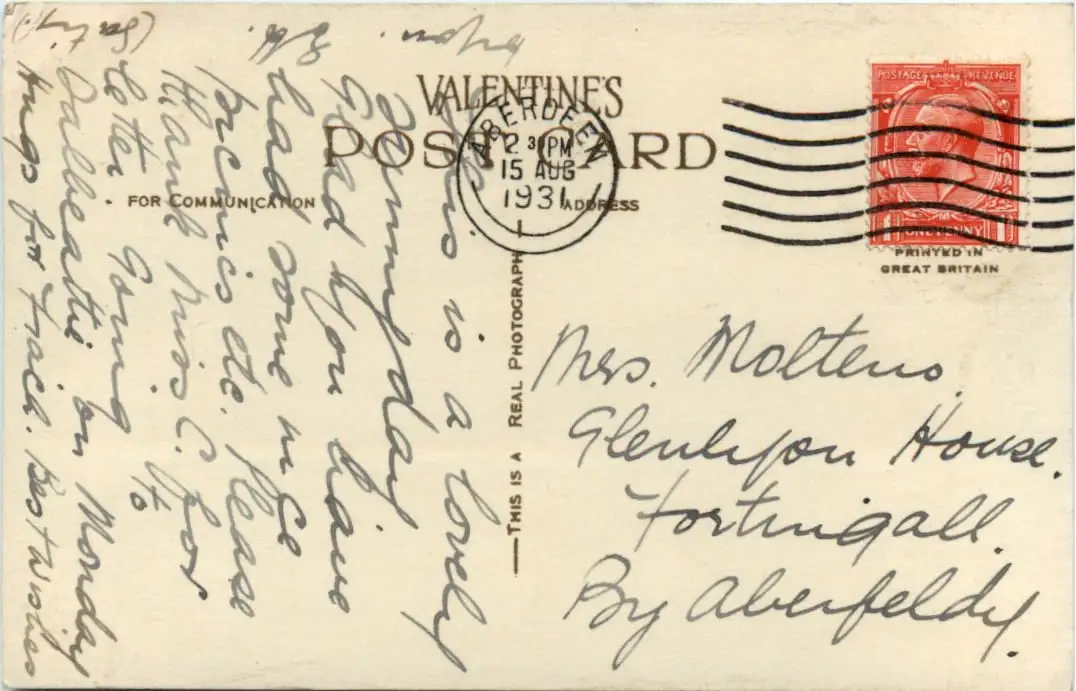 VALENTINE'S
POST CARD
FOR COMMUNICATION
ADDRESS
ABERDEEN
2 30 PM
15 AUG
1931
POSTAGE REVENUE
1 ONE PENNY 1
PRINTED IN
GREAT BRITAIN
THIS IS A REAL PHOTOGRAPH
This is a lovely
Sunny day
Glad you have
had some nice
picnics etc. please
thank Miss C. for
letter. Going to
Dalbeattie on Monday
Hugs for Best Wishes
Mrs. Molteno
Glenlyon House.
Fortingall.
By Aberfeldy.